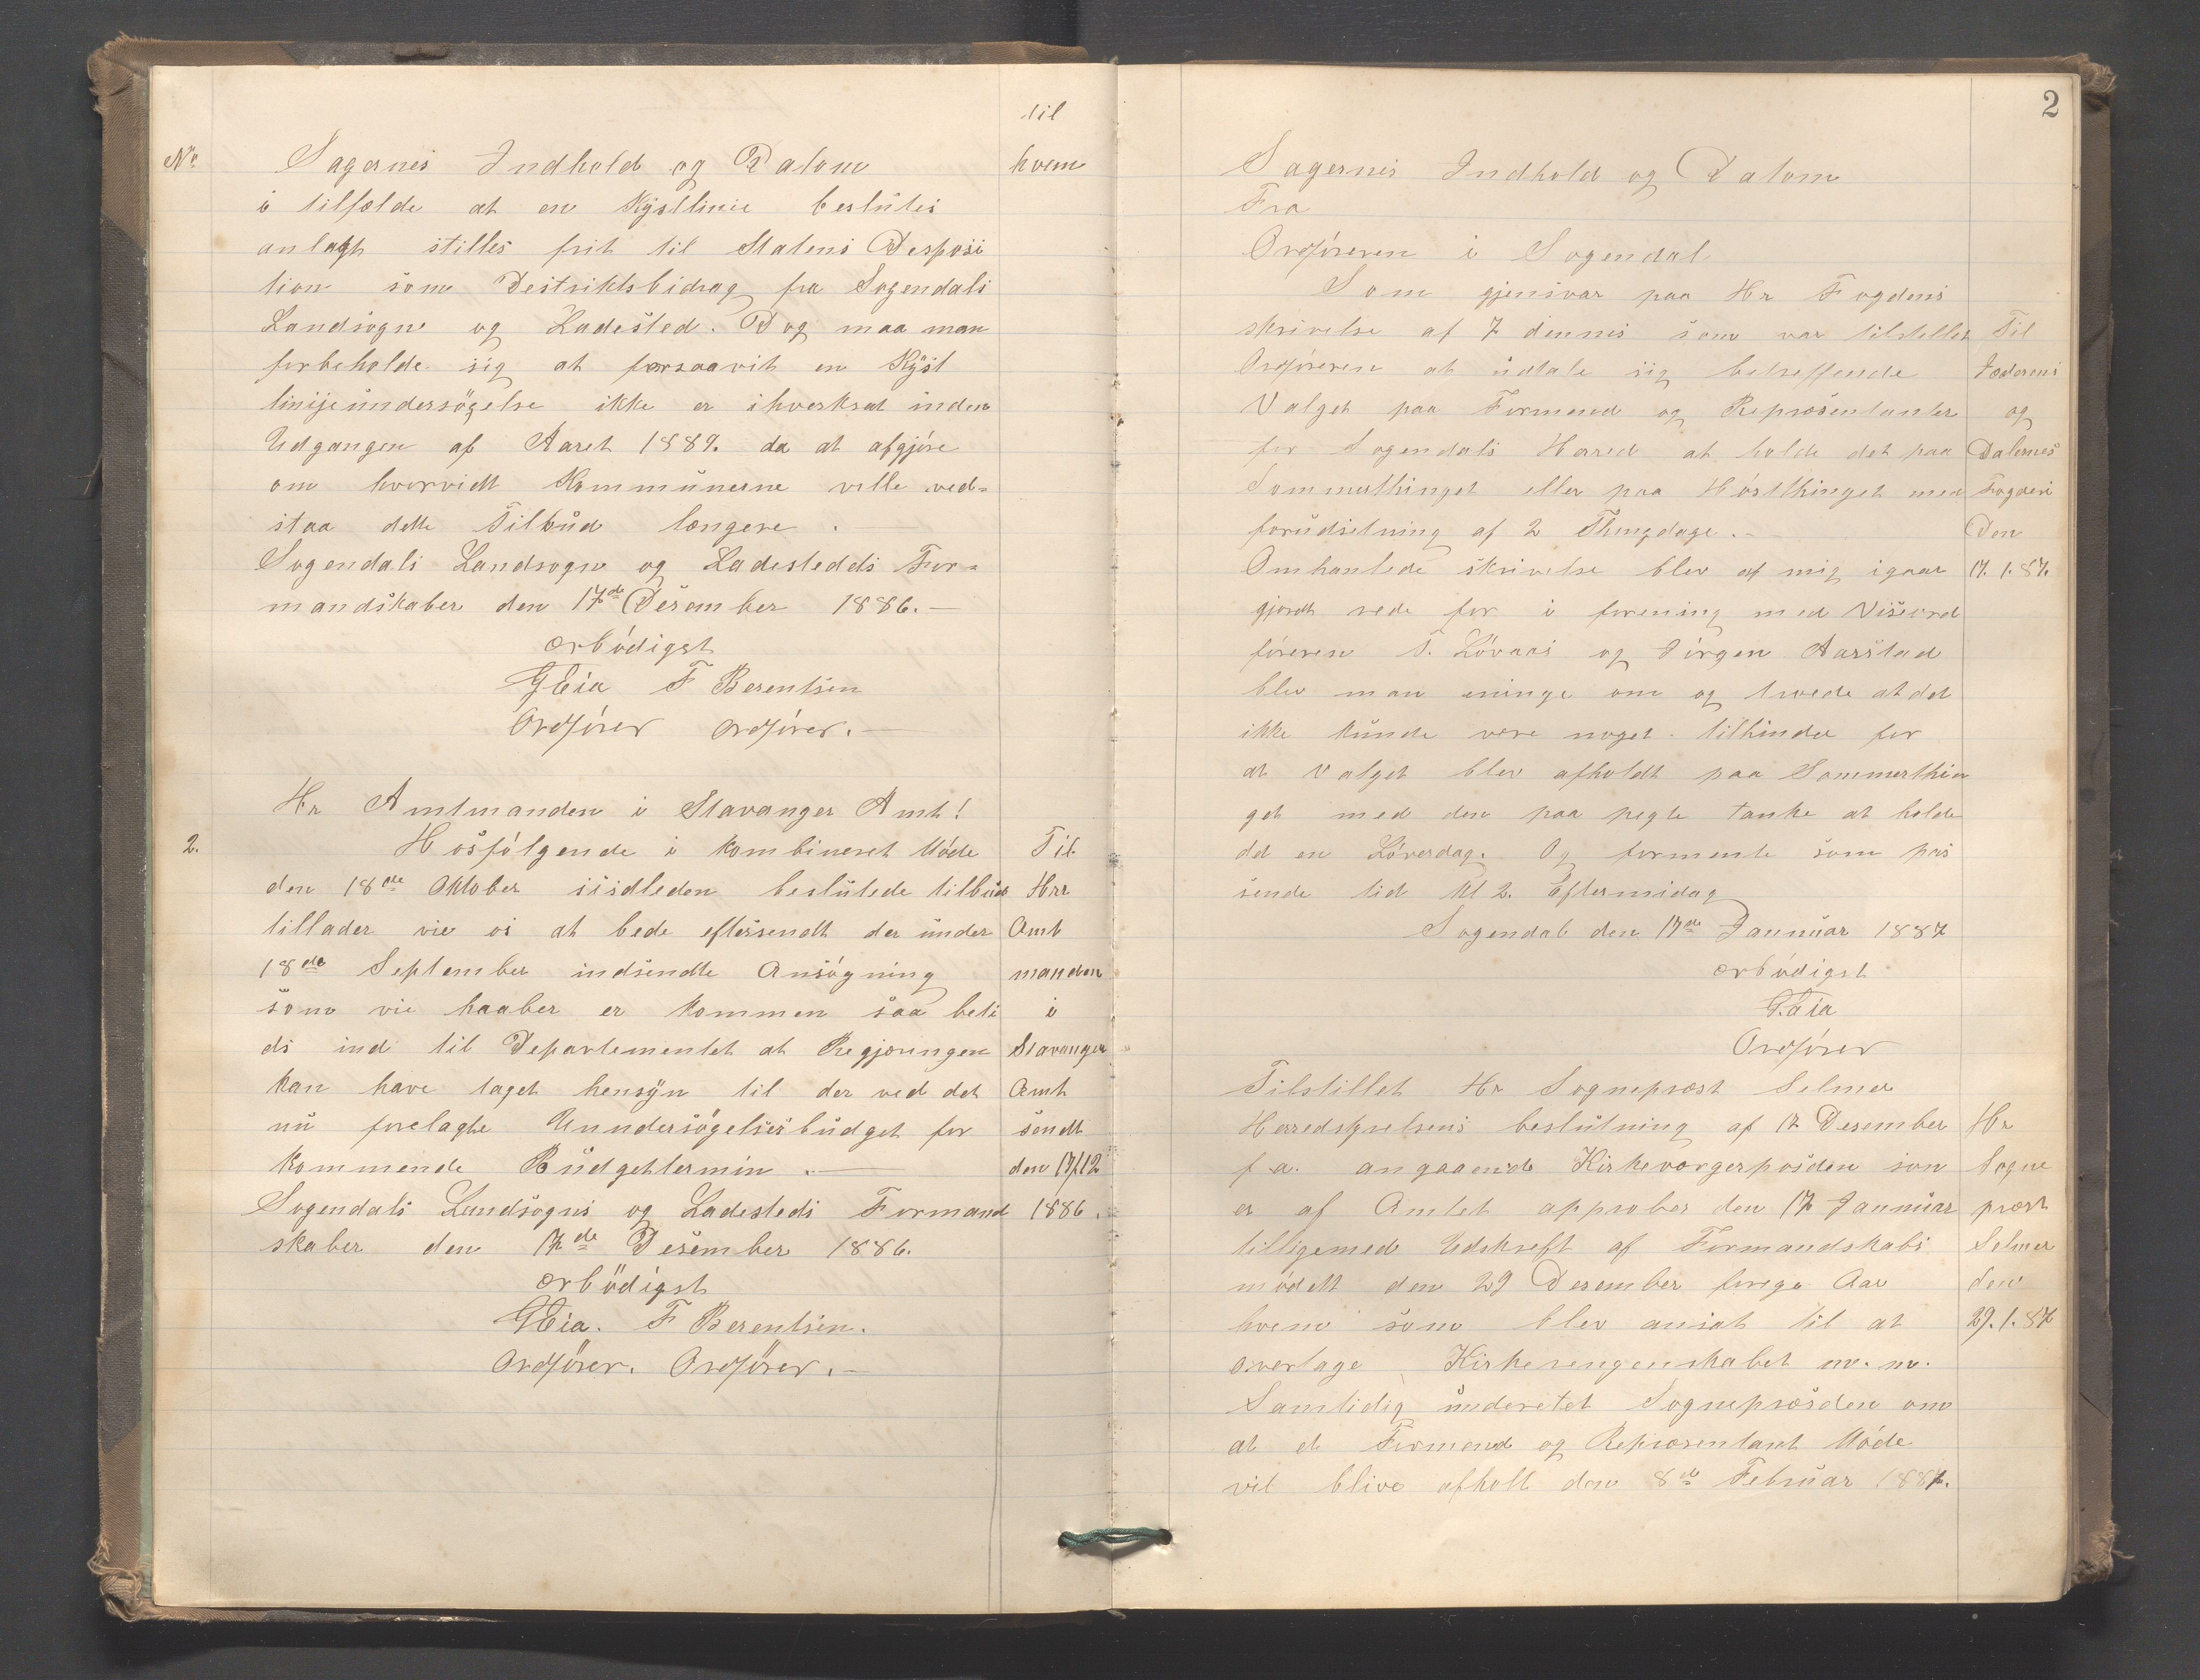 til
No Sagernes Indhold og Datom hvem
i tilfælde at en Kystlinie beslutes
anlagt stilles frit til Statens Desposi
tion som Destriktsbidrag fra Sogendals
Landsogne og Ladested. Dog maa man
forbeholde sig at forsaavit en Kyst
linijeundersögelse ikke er ihverksat inden
Udgangen af Aaret 1887. da at afgjöre
om hvorvidt Kommunerne ville ved=
staa dette Tilbud længere. —
Sogendals Landsogn og Ladestedds For=
mandskaber den 17de Desember 1886. —
ærbödigst
G Eia F Berentsen
Ordförer Ordförer. —
Hr Amtmanden i Stavanger Amt!
2. Hosfölgende i Kombineret Möde Til
den 18de Oktober sisdleden beslutede tilbud Hrr
tillader vie os at bede eftersendt der under Amt
18de September indsendte Ansögning manden
som vie haaber er kommen saa beti i
ds ind til Departementet at Regjæringen Stavanger
kan have taget hensyn til der ved det Amt
nu forelagte Unndersögelsesbudget for sendt
kommende Budgettermin. — den 17/12
Sogendals Landsogns og Ladesteds Formand 1886.
skaber den 17de Desember 1886.
ærbödigst
G Eia. F Berentsen.
Ordförer. Ordförer. —
2
Sagernes Indhold og Datom
Fra
Ordföreren i Sogendal
Som gjensvar paa Hr Fogdens
skrivelse af 7 dennes som var tilstellet Til
Ordföreren at udtale sig betreffende Jæderens
Valget paa Formend og Repræsentanter og
for Sogendals Herred at holde det paa Dalernes
Sommerthinget eller paa Höstthinget med Fogderi
forudsetning af 2 Thingdage. — Den
Omhantlede skrivelse blev af mig igaar 17. 1. 87.
gjordt rede for i forening med Viseord
föreren T. Lövaas og Jörgen Aarstad
blev man eninge om og trode at det
ikke kunde være noget tilhinder for
at valget blev afholdt paa Sommerthin
get med den paa pegte tanke at holde
dd en Löverdag. Og formente som pas
sende tid Kl 2. Eftermidag
Sogendal den 17de Januar 1887
ærbödigst
G. Eia
Ordförer
Tilstillet Hr Sognepræst Selmer
Herredstyrelsens beslutning af 17 Desember Hr
f. a. angaaende Kirkeværgerposden som Sogne
er af Amtet approber den 17 Januar præst
tilligemed Udskreft af Formandskabs Selmer
mödett den 29 Desember forege Aar den
hvem som blev ansat til at 29. 1. 87
overtage Kirkerengenskabet m. m.
Samtidig underetet Sognepræsden om
at et Formend og Repræsentant Möde
vil blive afholt den 8de Februar 1887.